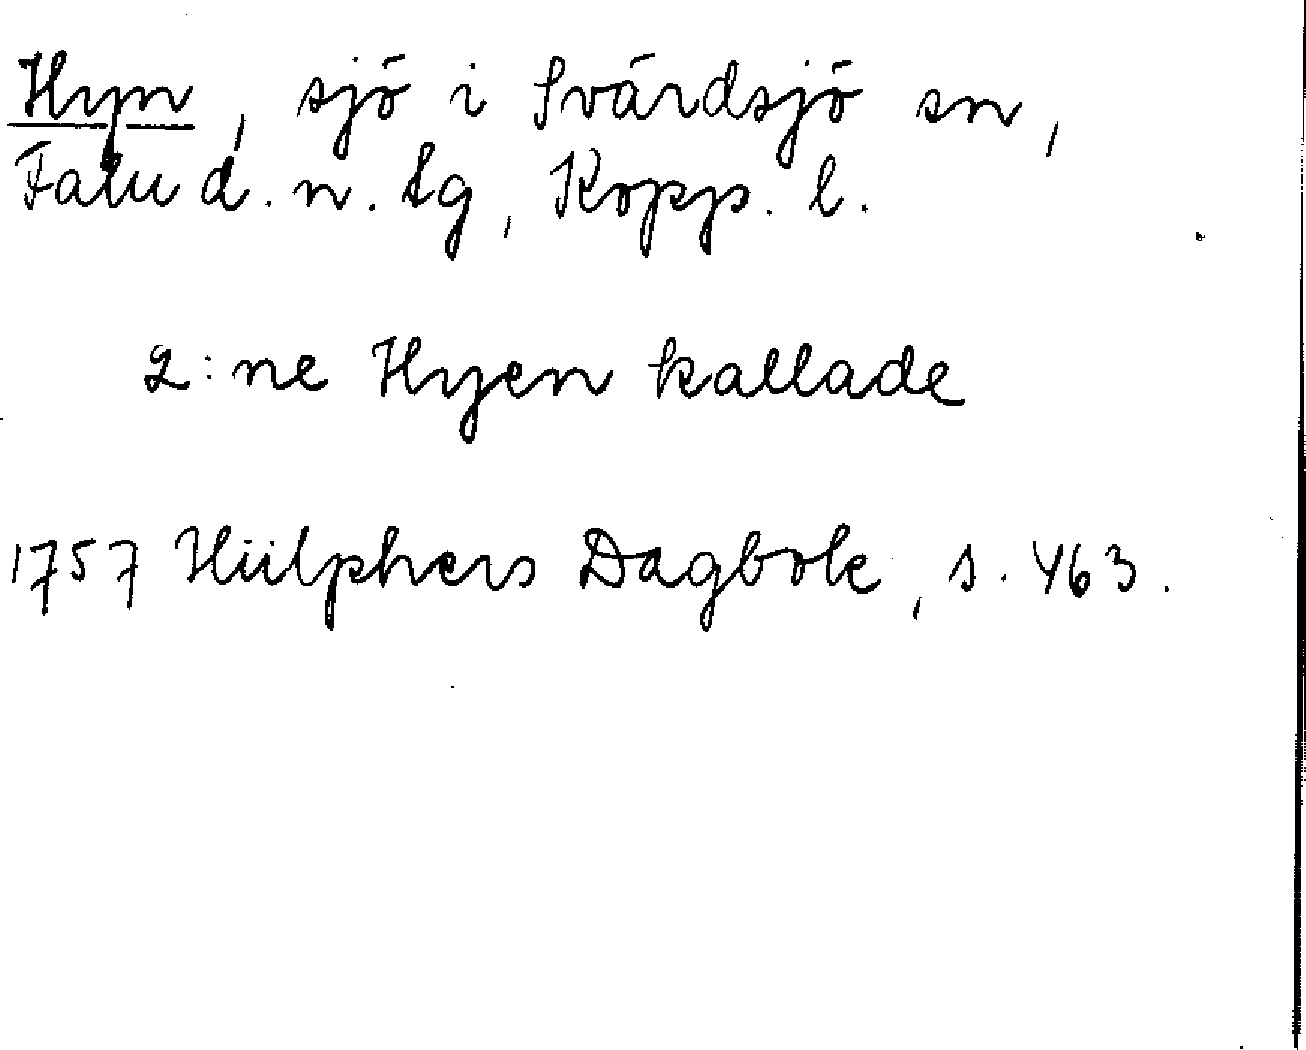 Hyn, sjö i Svärdsjö sn,
Falu d. n. lg, Kopp. l.
2:ne Hyen kallade
1757 Hülphers Dagbok, s. 463.